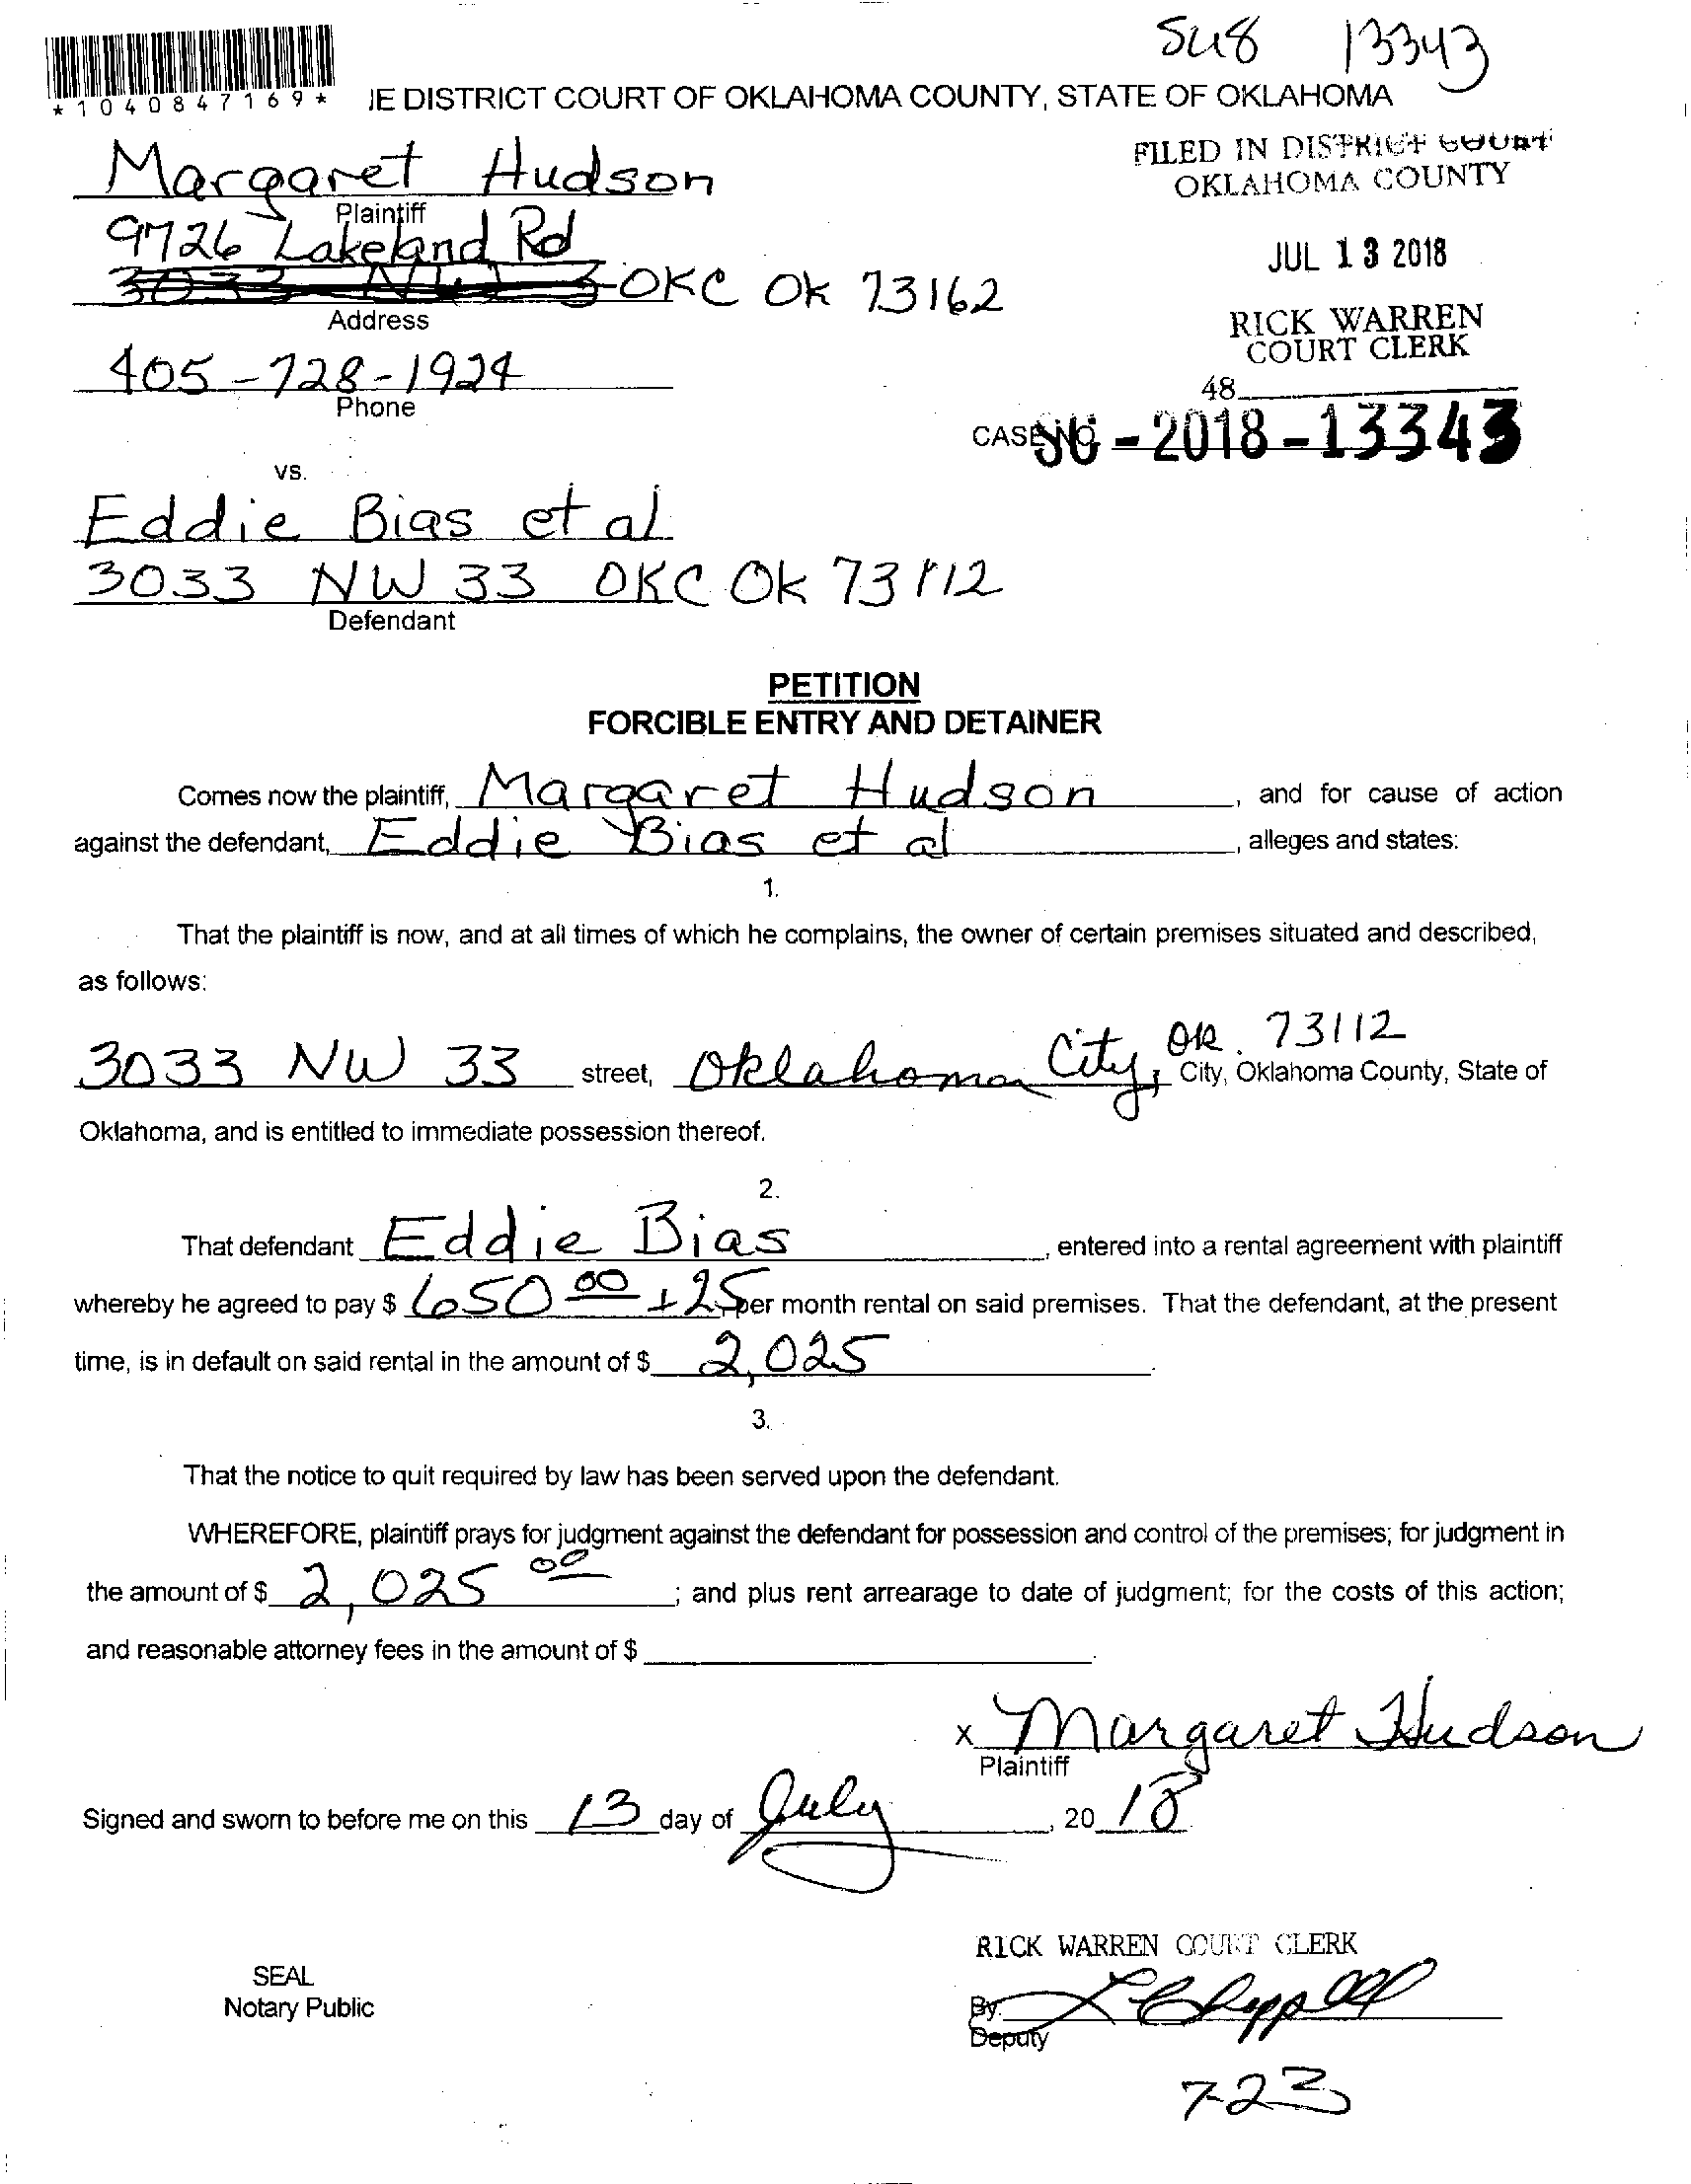 SU8 13343
*1040847169* IE DISTRICT COURT OF OKLAHOMA COUNTY, STATE OF OKLAHOMA
Margaret Hudson
Plaintiff
FILED IN DISTRICT COURT
OKLAHOMA COUNTY
9726 Lakeland Rd
JUL 13 2018
OKC OK 73162
Address
RICK WARREN
COURT CLERK
405-728-1924
Phone
48
CASE NO. SC-2018-13343
vs.
Eddie Bias et al
3033 NW 33 OKC OK 73112
Defendant
PETITION
FORCIBLE ENTRY AND DETAINER
Comes now the plaintiff, Margaret Hudson, and for cause of action
against the defendant, Eddie Bias et al, alleges and states:
1.
That the plaintiff is now, and at all times of which he complains, the owner of certain premises situated and described,
as follows:
3033 NW 33 street, Oklahoma City, OK. 73112 City, Oklahoma County, State of
Oklahoma, and is entitled to immediate possession thereof.
2.
That defendant Eddie Bias, entered into a rental agreement with plaintiff
whereby he agreed to pay $ 650 00 + 25 per month rental on said premises. That the defendant, at the present
time, is in default on said rental in the amount of $ 2,025.
3.
That the notice to quit required by law has been served upon the defendant.
WHEREFORE, plaintiff prays for judgment against the defendant for possession and control of the premises; for judgment in
the amount of $ 2,025 00; and plus rent arrearage to date of judgment; for the costs of this action;
and reasonable attorney fees in the amount of $ .
x Margaret Hudson
Plaintiff
Signed and sworn to before me on this 13 day of July, 20 18
RICK WARREN COURT CLERK
SEAL
Notary Public
By.
Deputy
7-23